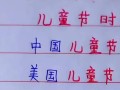 儿童节时
中国儿童节
美国儿童节